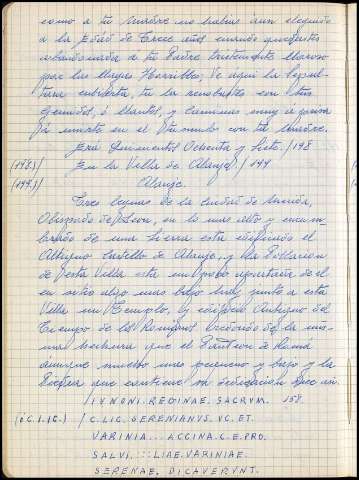 como a tu Madre no habias aun llegado
a la Edad de Trece años cuando
abandonada a tu Padre tristemente lloroso
por las llagas Horribles; He aqui la Sepul-
tura cubierta, tu la con otros
Gemidos, o llantos, y caminas muy a prisa
ya muerto en el Tumulo con tu Madre.
Era Quinientos Ochenta y Siete. /148
(143.) En la Villa de Alange. / 144
(144.) Alange.
Tres leguas de la Ciudad de Merida,
Obispado de Leon, en lo mas alto y encum-
brado de una sierra esta edificado el
Antiguo Castillo de Alange, y la Poblacion
de esta Villa esta un poco apartada de el
en sitio algo mas bajo hay junto a esta
Villa un Templo, y edificio Antiguo del
Tiempo de los Romanos redondo de la mis-
ma hechura que el Panteon de Roma
aunque mucho mas pequeno y bajo y la
Piedra que contiene su dedicacion dice asi.
IVNONI. REGINAE. SACRVM. 158.
(o C. I. C.) / C. LIC. SERENIANVS. VC. ET.
VARINIA... ACCINA. C. F. PRO.
SALVI. ::: LIAE. VARINIAE.
SERENAE. DICAVERVNT.